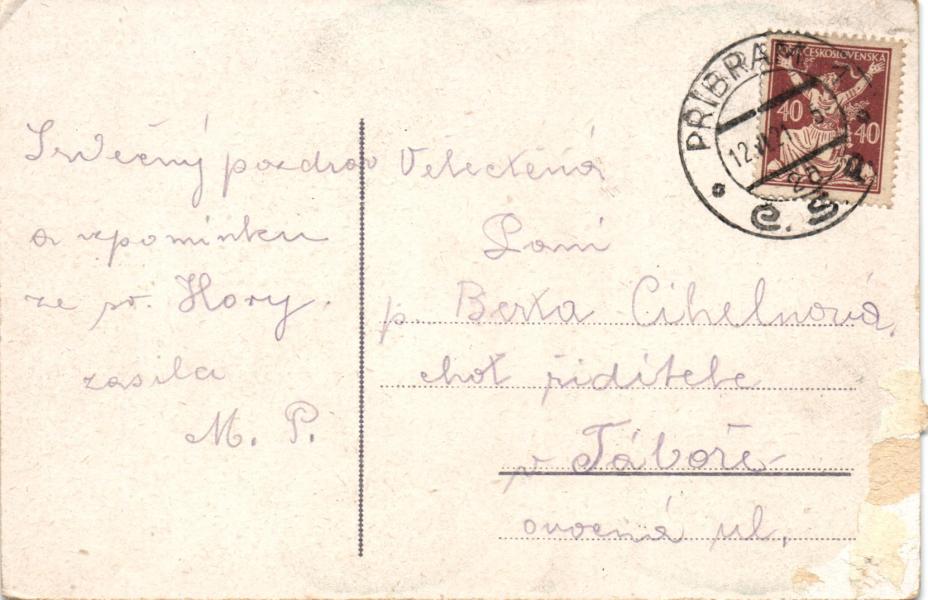 Srdečný pozdrav
a vzpomínku
ze sv. Hory.
zasílá
M. P.
Velectěná
Paní
p. Berta Cihelnová,
choť řiditele
v Táboře
ovocná ul.
PŘÍBRAM
12.VI.21
ČESKOSLOVENSKÁ
40
40